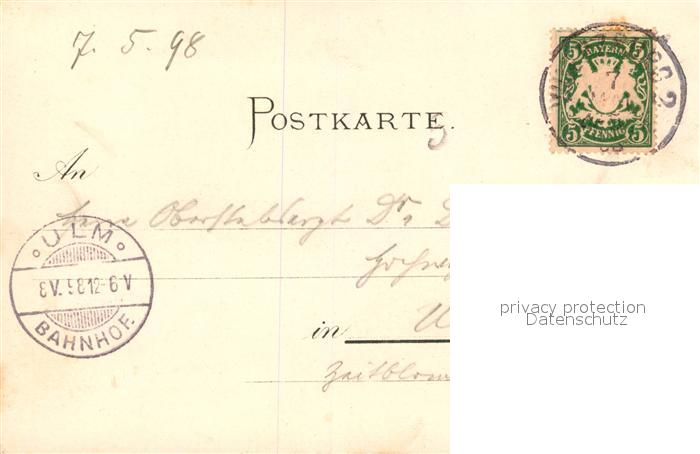 7. 5. 98
5 BAYERN 5
5 PFENNIG 5
7
2
POSTKARTE.
5
An
Herrn Oberstabsarzt Dr.
ULM
8 V. 98 12-6 V
BAHNHOF.
in U
Zeitblom
privacy protection
Datenschutz